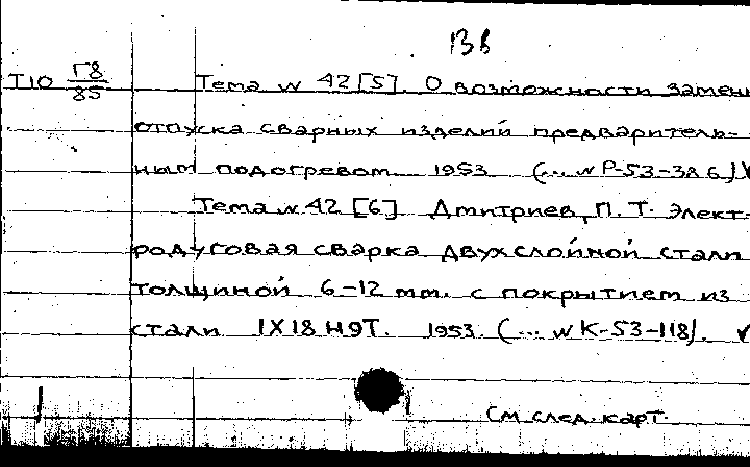 13в
Т10 Г8/85 Тема № 42 [5]. О возможности замены
отпуска сварных изделий предваритель-
ным подогревом. 1953 (... № Р-53-386) V
Тема № 42 [6]. Дмитриев, П. Т. Элект-
родуговая сварка двухслойной стали
толщиной 6-12 мм. с покрытием из
стали 1Х18Н9Т. 1953. (... № К-53-118). V
См. след. карт.